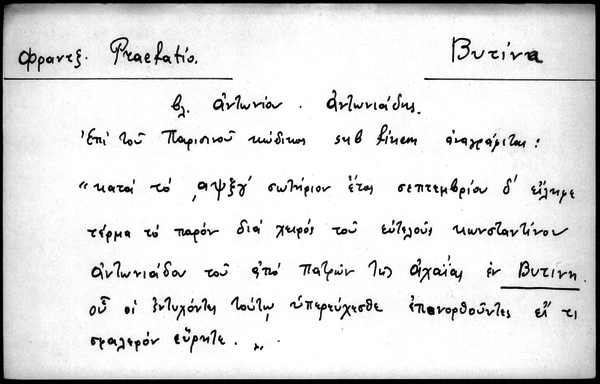 Φραντζ. Praefatio. Βυτίνα
βλ. Ἀντωνίου. Ἀντωνιάδης.
Ἐπὶ τοῦ Παρισινοῦ κώδικος sub finem ἀναγράφεται:
"κατὰ τὸ ,αψξγ' σωτήριον ἔτος σεπτεμβρίου δ' εἴληφε
τέρμα τὸ παρὸν διὰ χειρός τοῦ εὐτελοῦς κωνσταντίνου
ἀντωνιάδου τοῦ ἀπό πατρῶν τῆς ἀχαΐας ἐν Βυτίνῃ.
οὗ οἱ ἐντυχόντες τούτῳ ὑπερεύχεσθε ἐπανορθοῦντες εἴ τι
σφαλερόν εὕρητε.